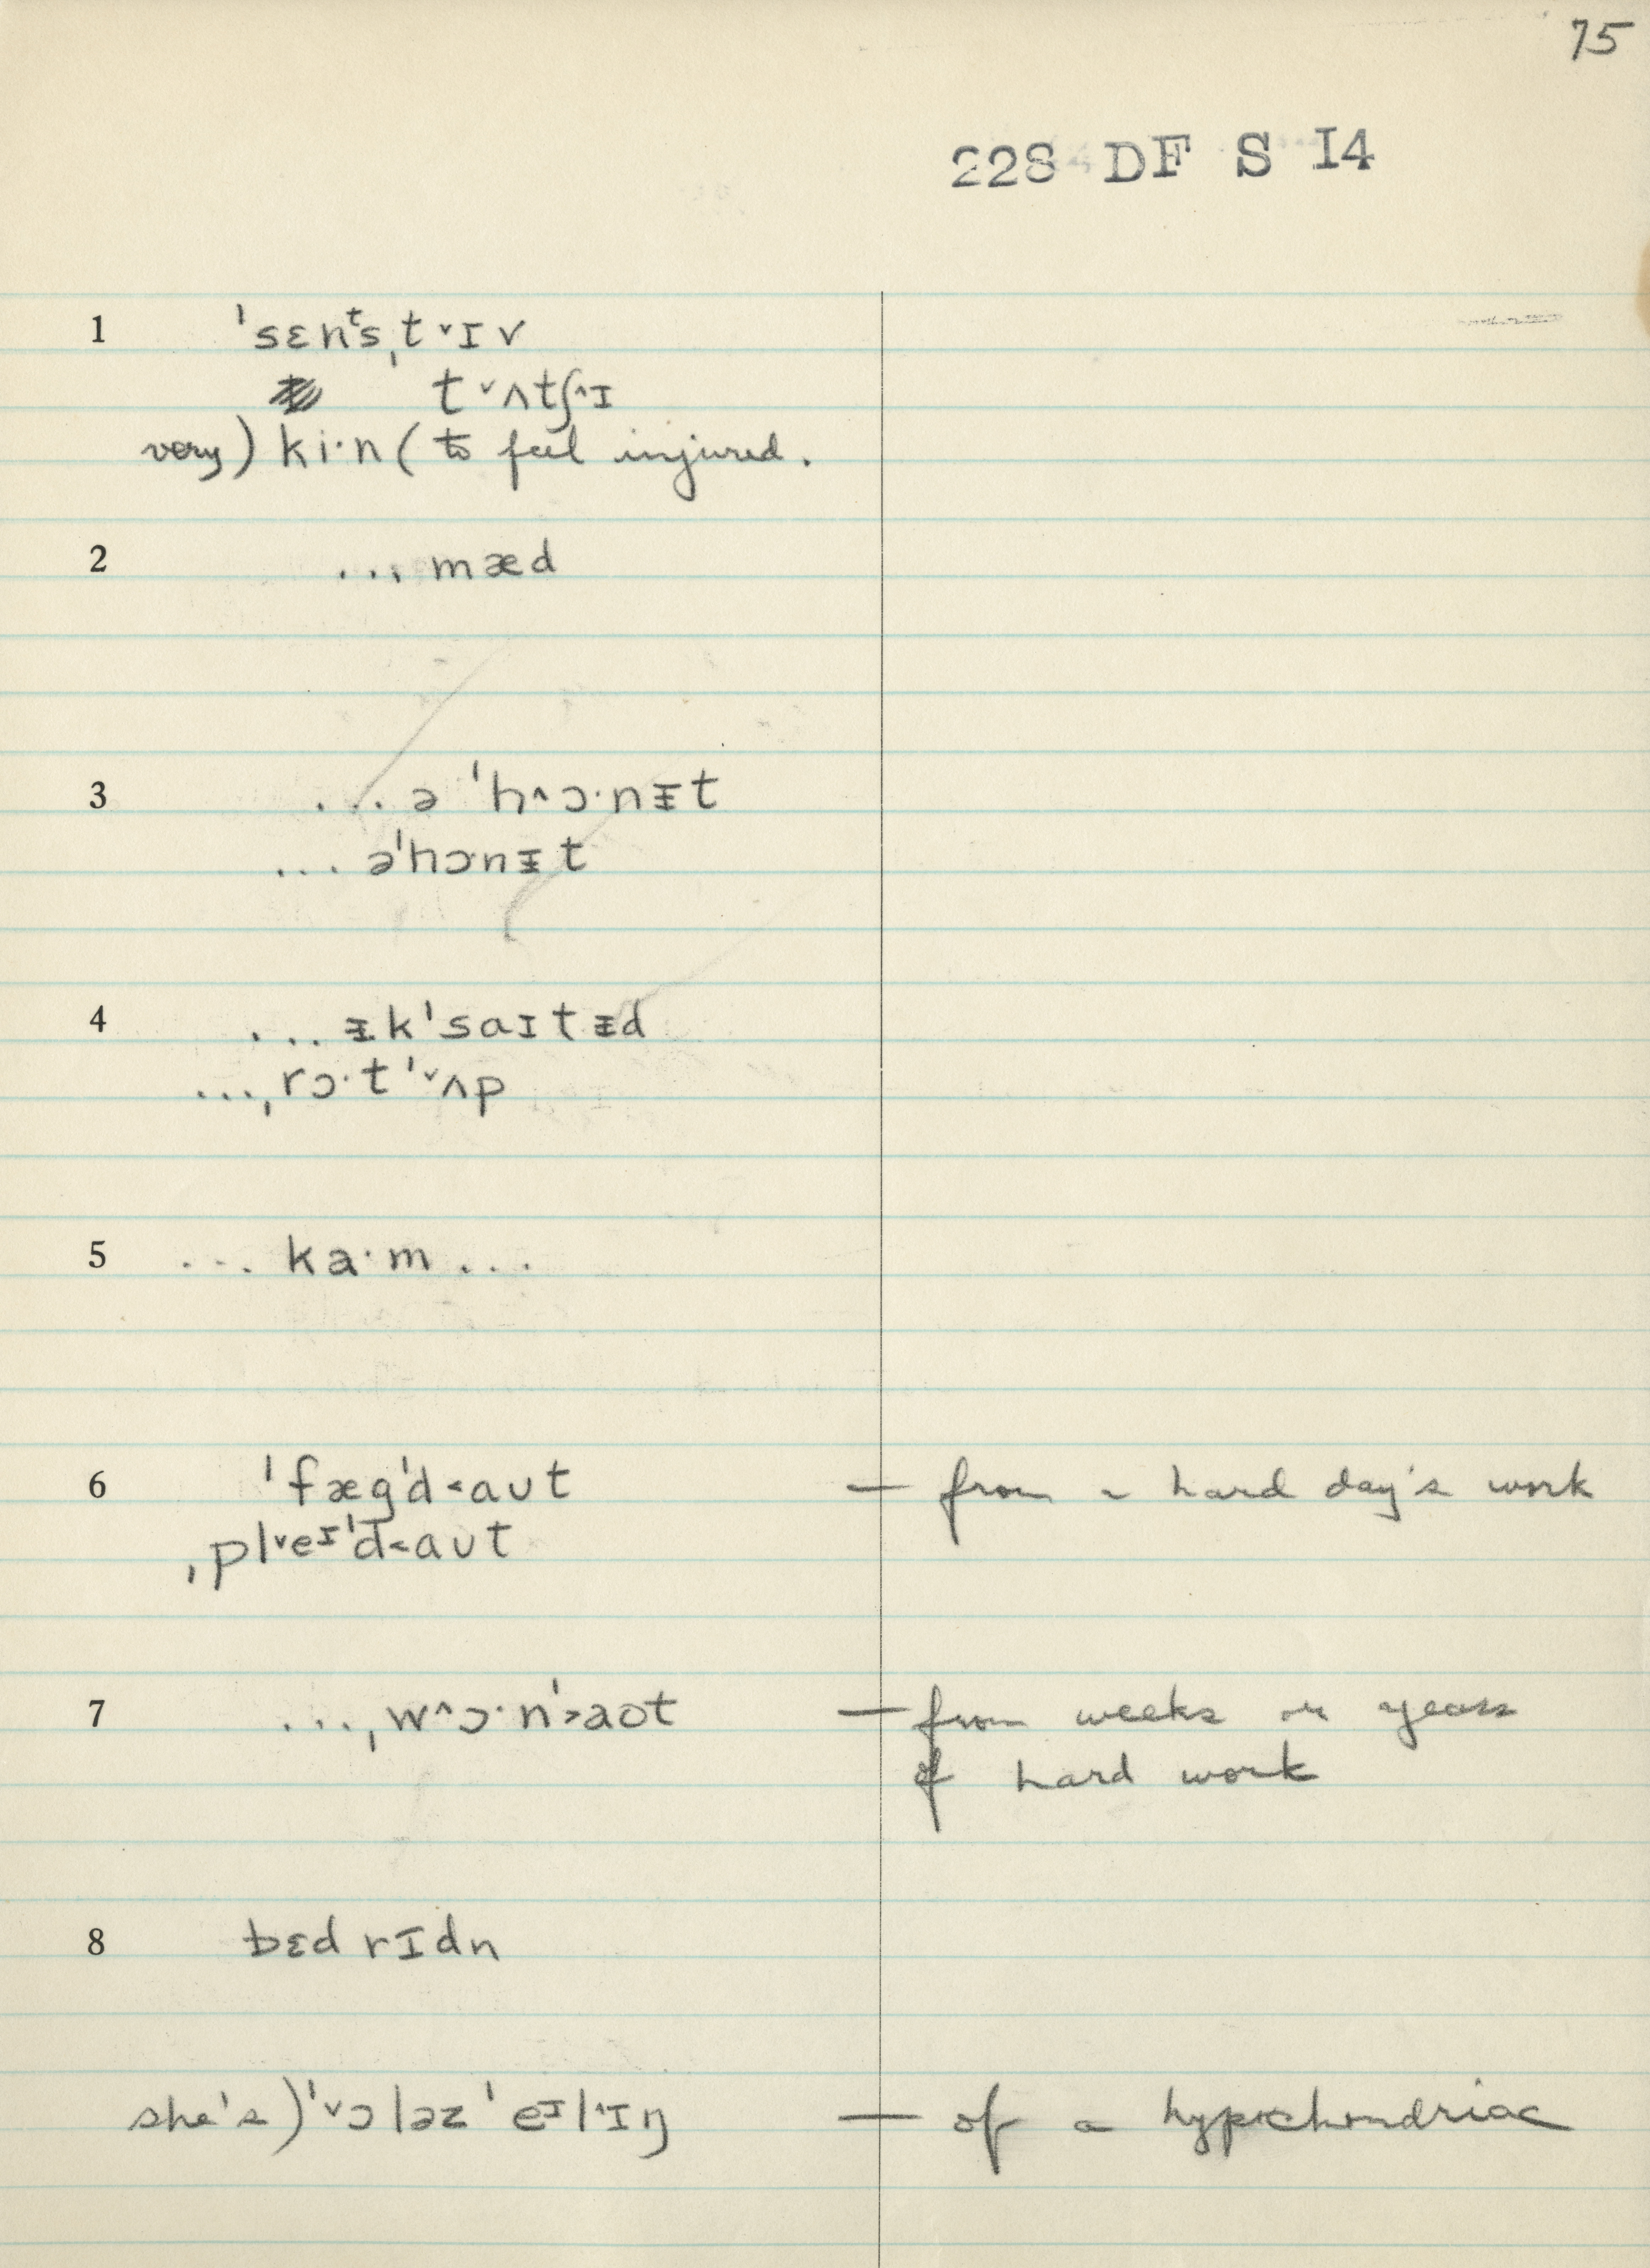 75
228 DF S I4
1 ˈsɛnᵗsˌt˅ɪv
t˅ʌtʃ^ɪ
very) ki·n ( to feel injured.
2 ... mæd
3 ... ə ˈh^ɔ·nᵻt
... əˈhɔ·nᵻt
4 ... ᵻkˈsaɪtᵻd
...ˌrɔ·tˈ˅ʌp
5 ... ka·m ...
6 ˈfægˈd<aʊt — from a hard day's work
ˌpl˅eᶦˈd<aʊt
7 ...ˌw^ɔ·nˈ>aʊt — from weeks or years
of hard work
8 bɛd rɪdn
she's) ˈ˅ɔləz ˈeᶦl^ɪŋ — of a hypochondriac